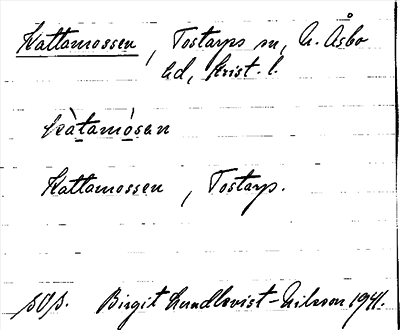 Kattamossen, Tostarps sn, N. Åsbo
hd, Krist. l.
kàtamósan
Kattamossen, Tostarp.
Birgit Lundkvist-Nilsson 1941.